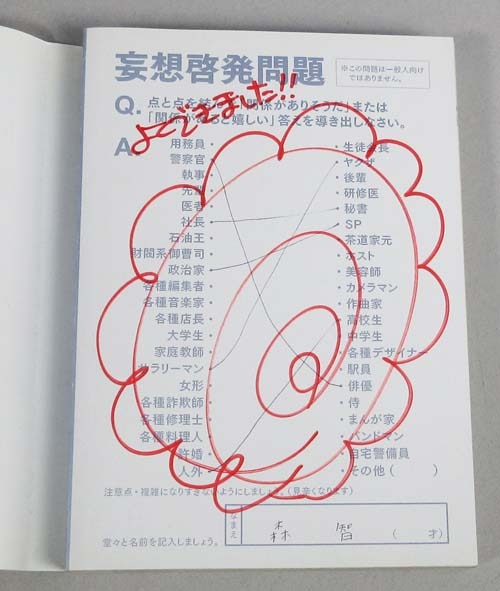 妄想啓発問題
※この問題は一般人向け
ではありません。
よくできました!!
Q. 点と点を結んで「関係がありそうだ」または
「関係があると嬉しい」答えを導き出しなさい。
A.
用務員
警察官
執事
先輩
医者
社長
石油王
財閥系御曹司
政治家
各種編集者
各種音楽家
各種店長
大学生
家庭教師
サラリーマン
女形
各種詐欺師
各種修理士
各種料理人
許婚
人外
生徒会長
ヤクザ
後輩
研修医
秘書
SP
茶道家元
ホスト
美容師
カメラマン
作曲家
高校生
中学生
各種デザイナー
駅員
俳優
侍
まんが家
バンドマン
自宅警備員
その他( )
注意点・複雑になりすぎないようにしましょう。(見辛くなります)
堂々と名前を記入しましょう。
なまえ
森 智 ( 才)